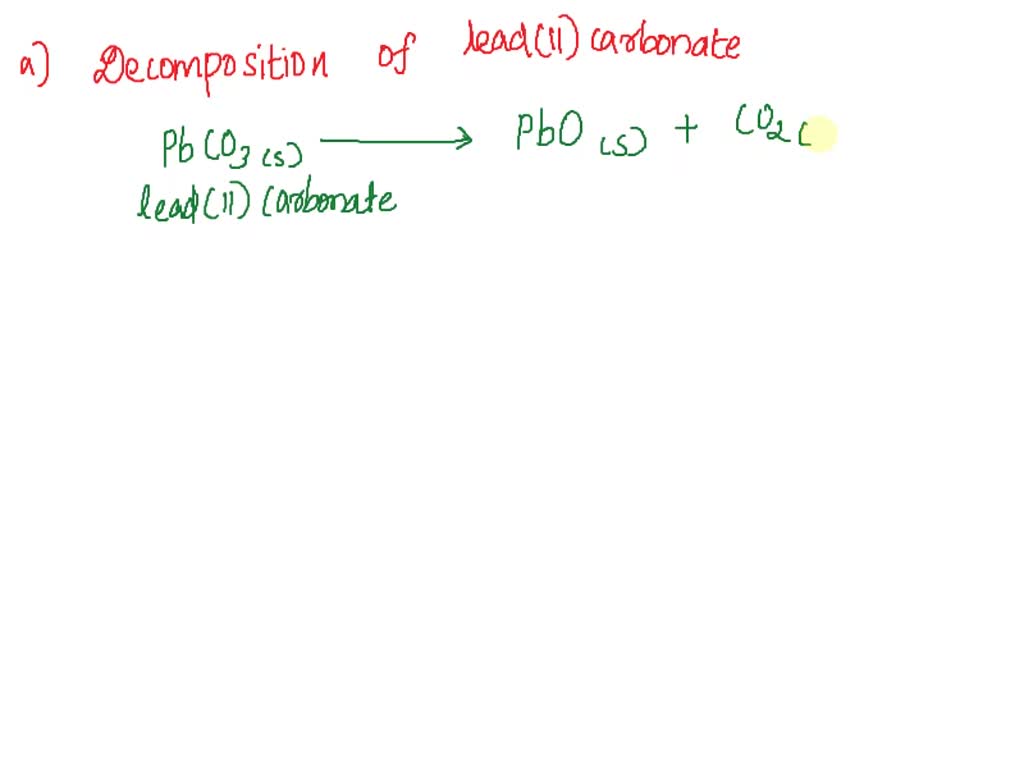 a) Decomposition of lead(II) carbonate
PbCO3(s) ⟶ PbO(s) + CO2(
lead(II) carbonate